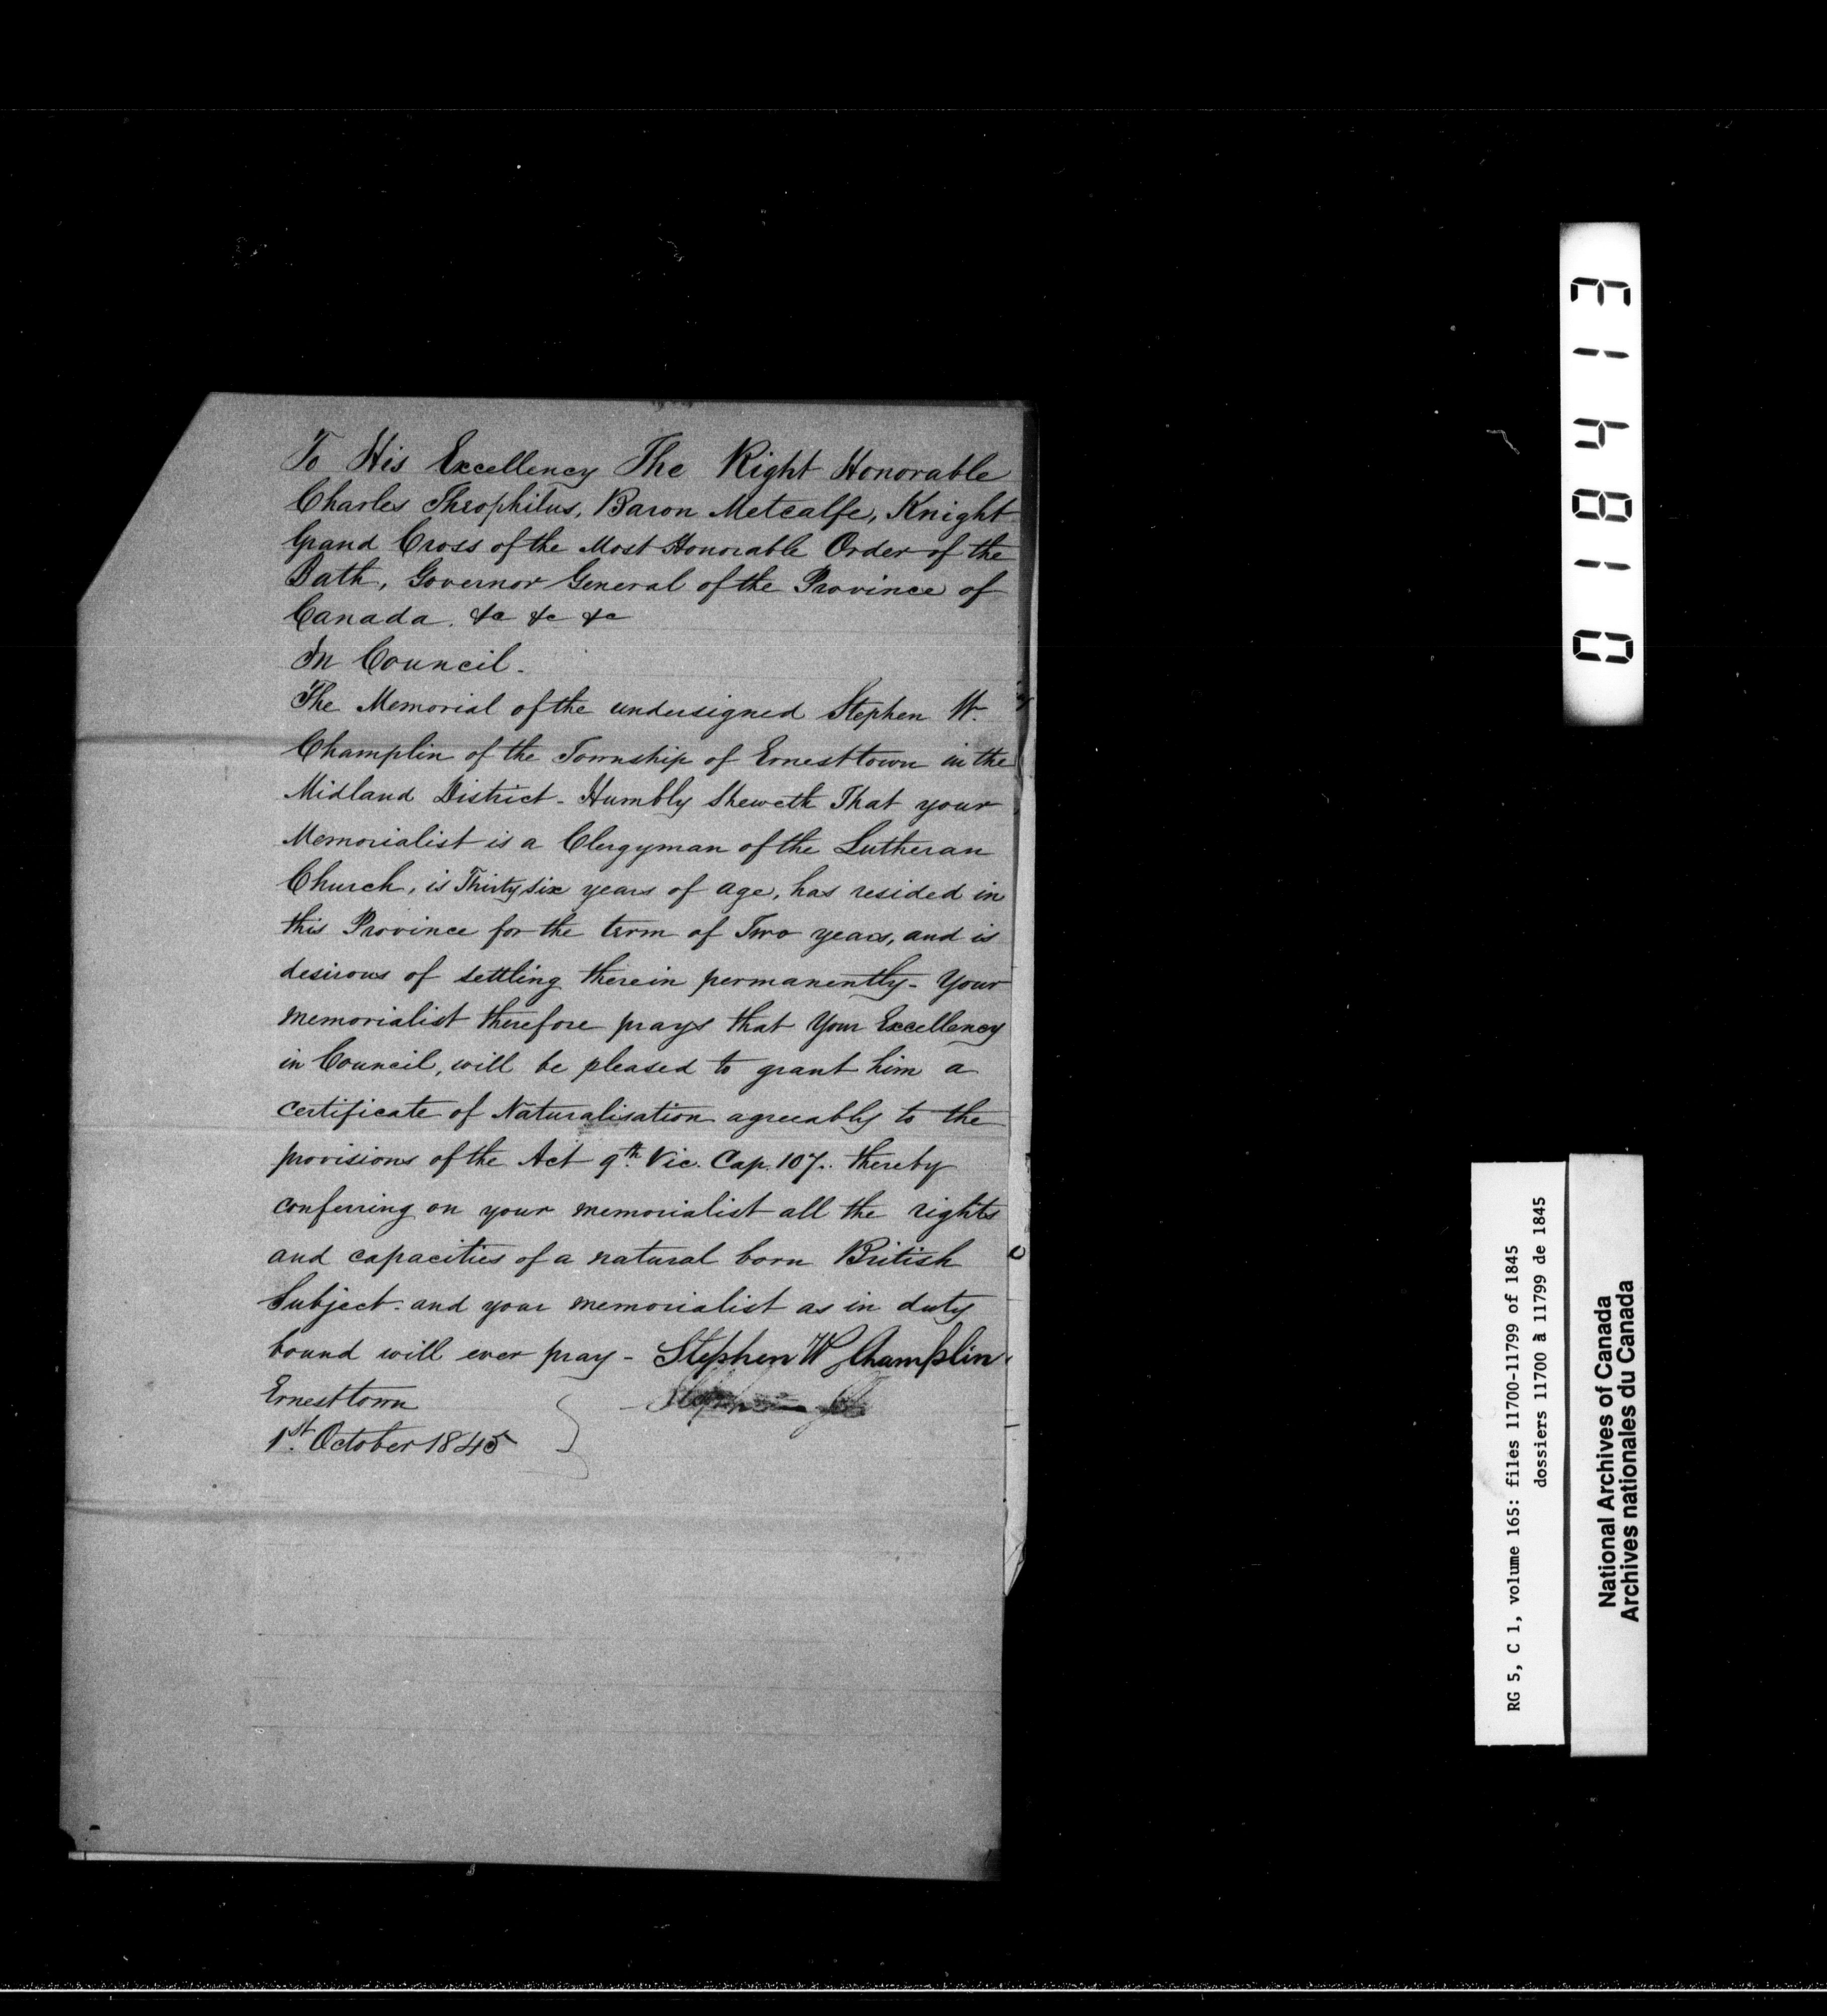 To His Excellency The Right Honorable
Charles Theophilus, Baron Metcalfe, Knight
Grand Cross of the Most Honorable Order of the
Bath, Governor General of the Province of
Canada. &c &c &c
In Council.
The Memorial of the undersigned Stephen W.
Champlin of the Township of Ernesttown in the
Midland District - Humbly Sheweth That your
Memorialist is a Clergyman of the Lutheran
Church, is Thirty six years of age, has resided in
this Province for the term of Two years, and is
desirous of settling therein permanently - Your
memorialist therefore prays that Your Excellency
in Council, will be pleased to grant him a
certificate of Naturalisation agreeably to the
provisions of the Act 9th. Vic. Cap. 107. thereby
conferring on your memorialist all the rights
and capacities of a natural born British
Subject. and your memorialist as in duty
bound will ever pray - Stephen W Champlin
Ernesttown
1st. October 1845
018413
RG 5, C 1, volume 165: files 11700-11799 of 1845
dossiers 11700 à 11799 de 1845
National Archives of Canada
Archives nationales du Canada